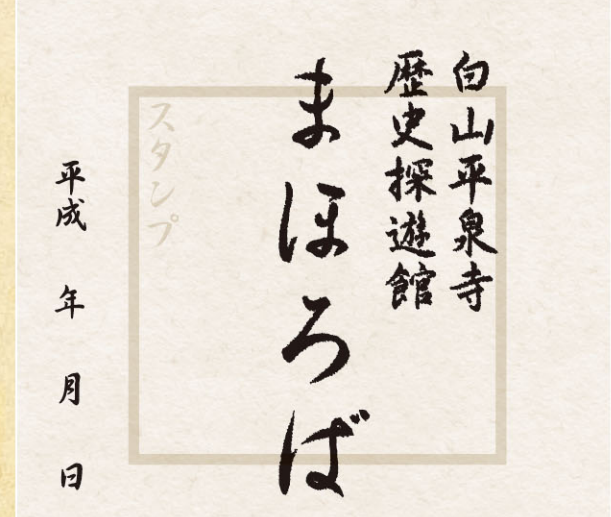 白山平泉寺
歴史探遊館
まほろば
スタンプ
平成　年　月　日